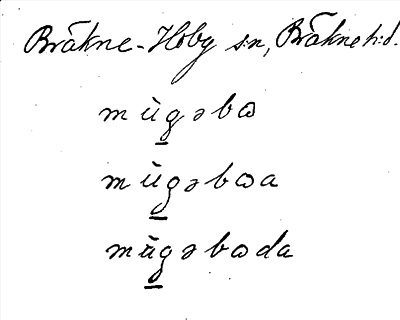 Bräkne-Hoby s:n, Bräkne h:d.
mùg̲əbɷ
mùg̲əbɷa
mùg̲əbɷda